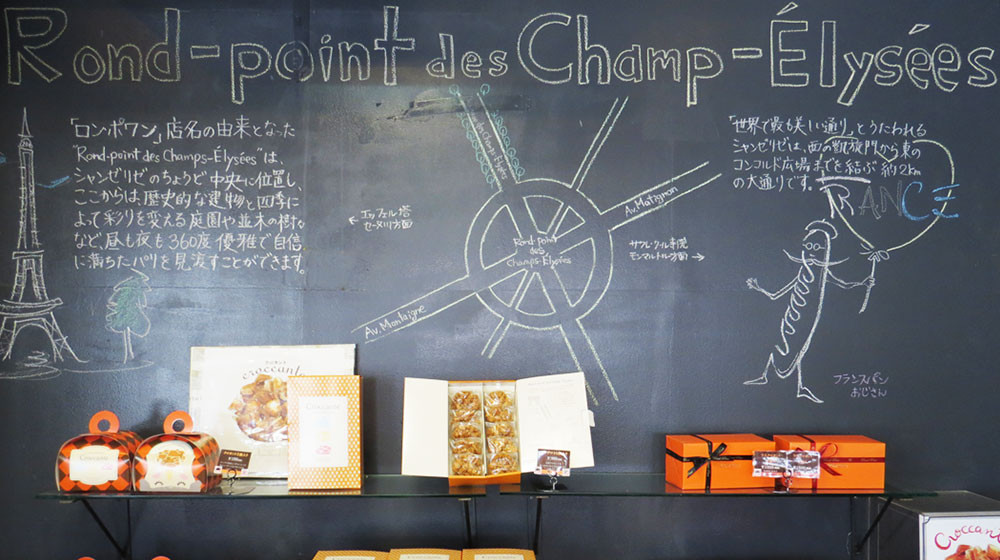 Rond-point des Champ-Élysées
「ロン・ポワン」店名の由来となった
"Rond-point des Champs-Élysées"は、
シャンゼリゼのちょうど中央に位置し、
ここからは、歴史的な建物と四季に
よって彩りを変える庭園や並木の樹々
など、昼も夜も360度優雅で自信
に満ちたパリを見渡すことができます。
←エッフェル塔
セーヌ川方面
Av. des Champs-Élysées
Av. Matignon
Rond-point
des
Champs-Élysées
Av. Montaigne
サクレ・クール寺院
モンマルトル方面→
「世界で最も美しい通り」とうたわれる
シャンゼリゼは、西の凱旋門から東の
コンコルド広場までを結ぶ約2km
の大通りです。
FRANCE
フランスパン
おじさん
croccante
Croccante
Croccante
Croccante